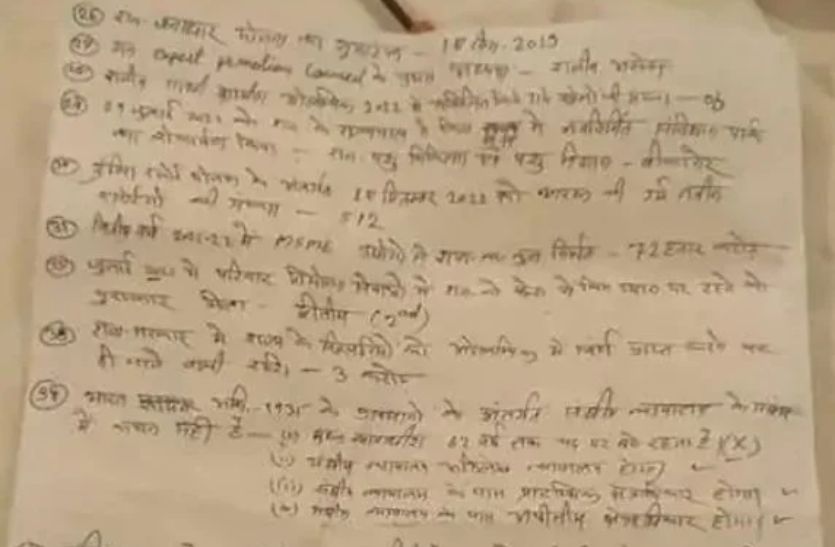 (26) राज. जनाधार योजना का शुभारम्भ - 18 दिस. 2019
(27) राज. export promotion council के प्रथम अध्यक्ष - राजीव अरोड़ा
(28) राजीव गांधी ग्रामीण ओलम्पिक 2022 में सम्मिलित किये गये खेलों की संख्या - 06
(29) 01 जुलाई 2022 को राज. के राज्यपाल ने किस में नवनिर्मित संविधान पार्क
का लोकार्पण किया - राज. पशु चिकित्सा एवं पशु विज्ञान - बीकानेर
इन्दिरा रसोई योजना के अन्तर्गत 18 सितम्बर 2022 को आरम्भ की गई नवीन
रसोईयों की संख्या - 512
(31) वित्तीय वर्ष 2021-22 में MSME उद्योगों में राज. का कुल निर्यात - 72 हजार करोड़
जुलाई में परिवार नियोजन में राज. को देश में किस स्थान पर रहने का
पुरस्कार मिला - द्वितीय (2nd)
(33) राज. सरकार में राज्य के खिलाड़ियों को ओलम्पिक में स्वर्ण प्राप्त करने पर
दी जाने वाली राशि - 3 करोड़
(34) भारत अधि. 1935 के प्रावधानों के अंतर्गत संघीय न्यायालय के संबंध
में कथन नहीं है - (i) मुख्य न्यायाधीश 62 वर्ष तक पद पर बने रहता है (X)
(ii) संघीय न्यायालय अभिलेख न्यायालय होगा ✓
(iii) संघीय न्यायालय के पास प्रारम्भिक क्षेत्राधिकार होगा ✓
(iv) संघीय न्यायालय के पास अपीलीय क्षेत्राधिकार होगा ✓